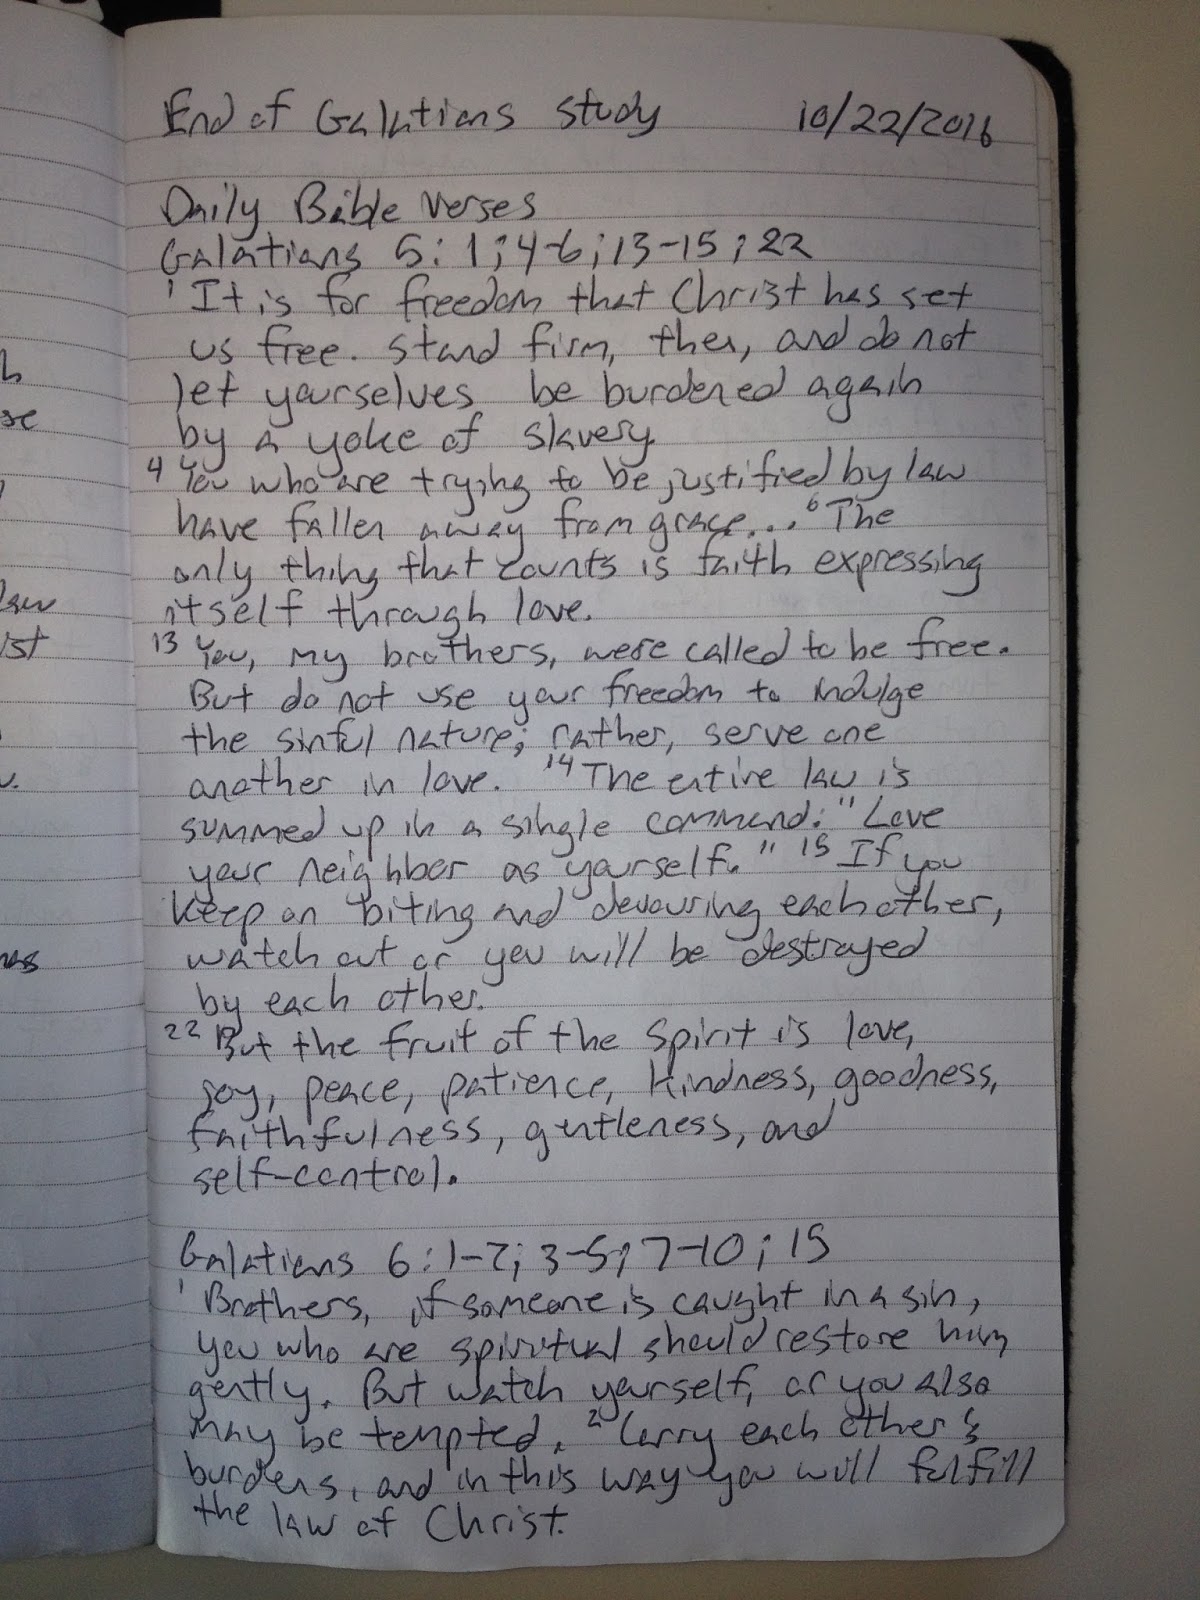 End of Galatians study 10/22/2016
Daily Bible Verses
Galatians 5:1; 4-6; 13-15; 22
1 It is for freedom that Christ has set
us free. Stand firm, then, and do not
let yourselves be burdened again
by a yoke of slavery.
4 You who are trying to be justified by law
have fallen away from grace... 6 The
only thing that counts is faith expressing
itself through love.
13 You, my brothers, were called to be free.
But do not use your freedom to indulge
the sinful nature; rather, serve one
another in love. 14 The entire law is
summed up in a single command: "Love
your neighbor as yourself." 15 If you
keep on biting and devouring each other,
watch out or you will be destroyed
by each other.
22 But the fruit of the Spirit is love,
joy, peace, patience, kindness, goodness,
faithfulness, gentleness, and
self-control.
Galatians 6:1-2; 3-5; 7-10; 15
1 Brothers, if someone is caught in a sin,
you who are spiritual should restore him
gently. But watch yourself, or you also
may be tempted. 2 Carry each other's
burdens, and in this way you will fulfill
the law of Christ.